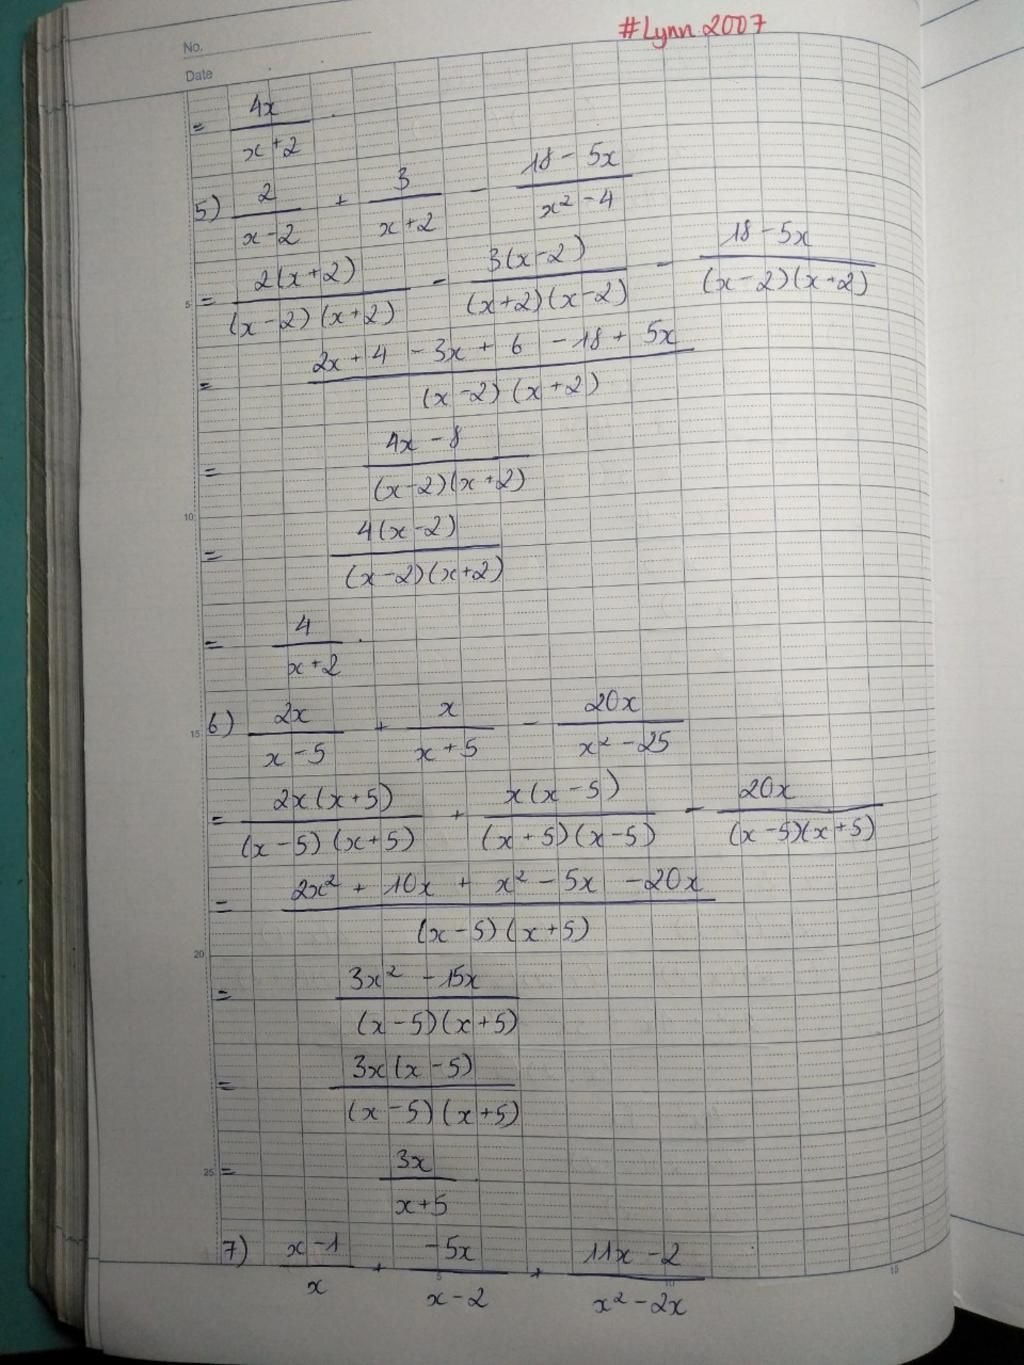 #Lynn 2007
No.
Date
= 4x / x+2
5) 2 / x-2 + 3 / x+2 - 18 - 5x / x² - 4
5 = 2(x+2) / (x-2)(x+2) - 3(x-2) / (x+2)(x-2) - 18 - 5x / (x-2)(x+2)
= 2x + 4 - 3x + 6 - 18 + 5x / (x-2)(x+2)
= 4x - 8 / (x-2)(x+2)
10 = 4(x-2) / (x-2)(x+2)
= 4 / x+2 .
15 6) 2x / x-5 + x / x+5 - 20x / x² - 25
= 2x(x+5) / (x-5)(x+5) + x(x-5) / (x+5)(x-5) - 20x / (x-5)(x+5)
= 2x² + 10x + x² - 5x - 20x / (x-5)(x+5)
20
= 3x² - 15x / (x-5)(x+5)
= 3x(x-5) / (x-5)(x+5)
25 = 3x / x+5
7) x-1 / x + -5x / x-2 + 11x - 2 / x² - 2x
5 10 15